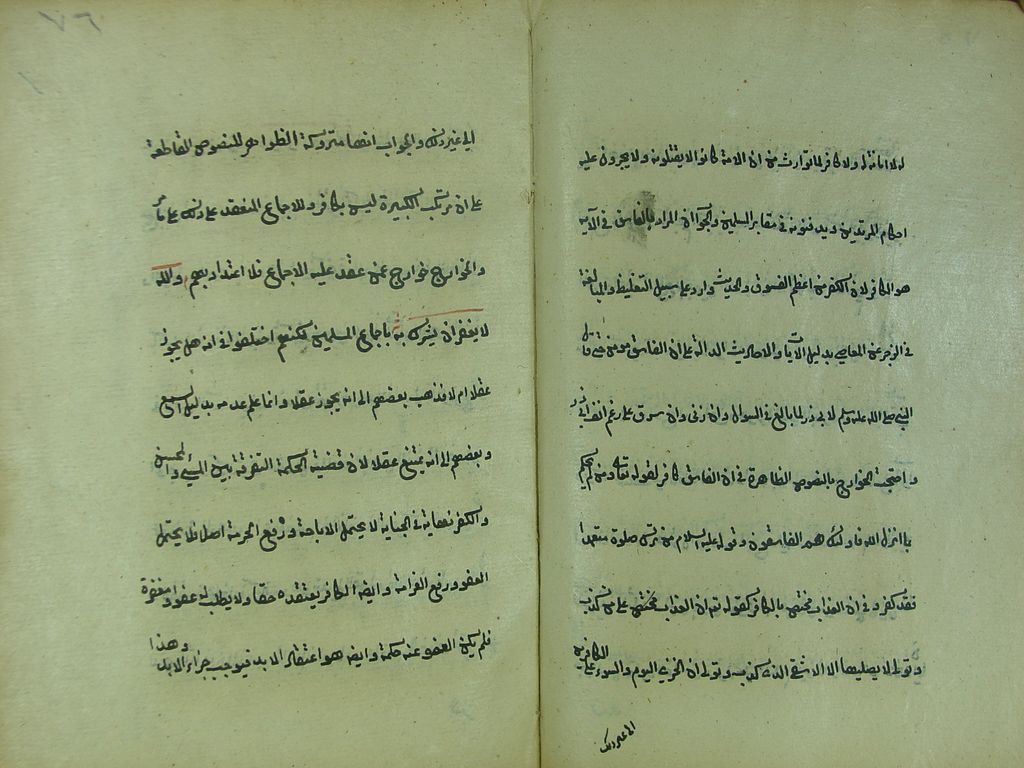 له لا امانة له ولا كافر لما توارث من ان الامة كانوا لا يقتلونه ولا يجرون عليه
احكام المرتدين ويدفنونه في مقابر المسلمين والجواب ان المراد بالفاسق في الآية
هو الكافر لان الكفر من اعظم الفسوق والحديث وارد على سبيل التغليظ والمبالغة
في الزجر عن المعاصي بدليل الآيات والاحاديث الدالة على ان الفاسق مومن حتى قال
النبي صلى الله عليه وسلم لابي ذر لما بالغ في السوال وان زنى وان سرق على رغم انف ابي ذر
و احتجت الخوارج بالنصوص الظاهرة في ان الفاسق كافر لقوله تعالى ومن لم يحكم
بما انزل الله فاولئك هم الفاسقون وقوله عليه السلام من ترك صلوة متعمدا
فقد كفر و في ان العذاب مختص بالكافر كقوله تع ان العذاب مختص على من كذب
وتولى لا يصليها الا الاشقى الذي كذب وتولى ان الخزي اليوم والسوء على الكافرين
الى غير ذلك
الى غير ذلك والجواب انها متروكة الظواهر للنصوص القاطعة
على ان مرتكب الكبيرة ليس بكافر وللاجماع المنعقد على ذلك على ما مر
والخوارج خوارج عمن عقد عليه الاجماع فلا اعتداد بهم والله
لا يغفر ان يشرك به باجماع المسلمين لكنهم اختلفوا في انه هل يجوز
عقلا ام لا فذهب بعضهم الى انه يجوز عقلا وانما علم عدمه بدليل السمع
و بعضهم الى انه يمتنع عقلا لان قضية الحكمة التفرقة بين المسيء والمحسن
والكفر نهاية في الجناية لا يحتمل الاباحة ورفع الحرمة اصلا فلا يحتمل
العفو ورفع الغرامة وايضا الكافر يعتقده حقا ولا يطلب له عفوا ومغفرة
فلم يكن العفو عنه حكمة وايضا هو اعتقاد الابد فيوجب جزاء الابد وهذا